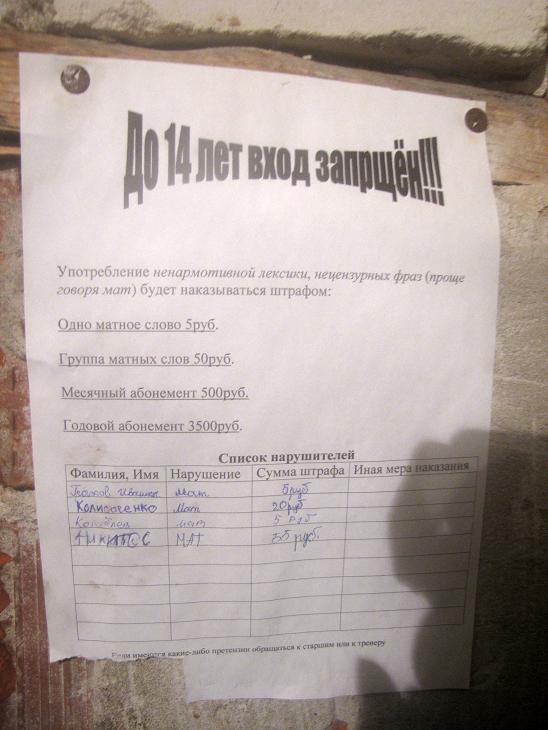 До 14 лет вход запрщён!!!
Употребление ненармотивной лексики, нецензурных фраз (проще
говоря мат) будет наказываться штрафом:
Одно матное слово 5руб.
Группа матных слов 50руб.
Месячный абонемент 500руб.
Годовой абонемент 3500руб.
Список нарушителей
Фамилия, Имя Нарушение Сумма штрафа Иная мера наказания
мат 5руб
Мат 20руб
мат 5 руб
МАТ 55 руб.
Если имеются какие-либо претензии обращаться к старшим или к тренеру